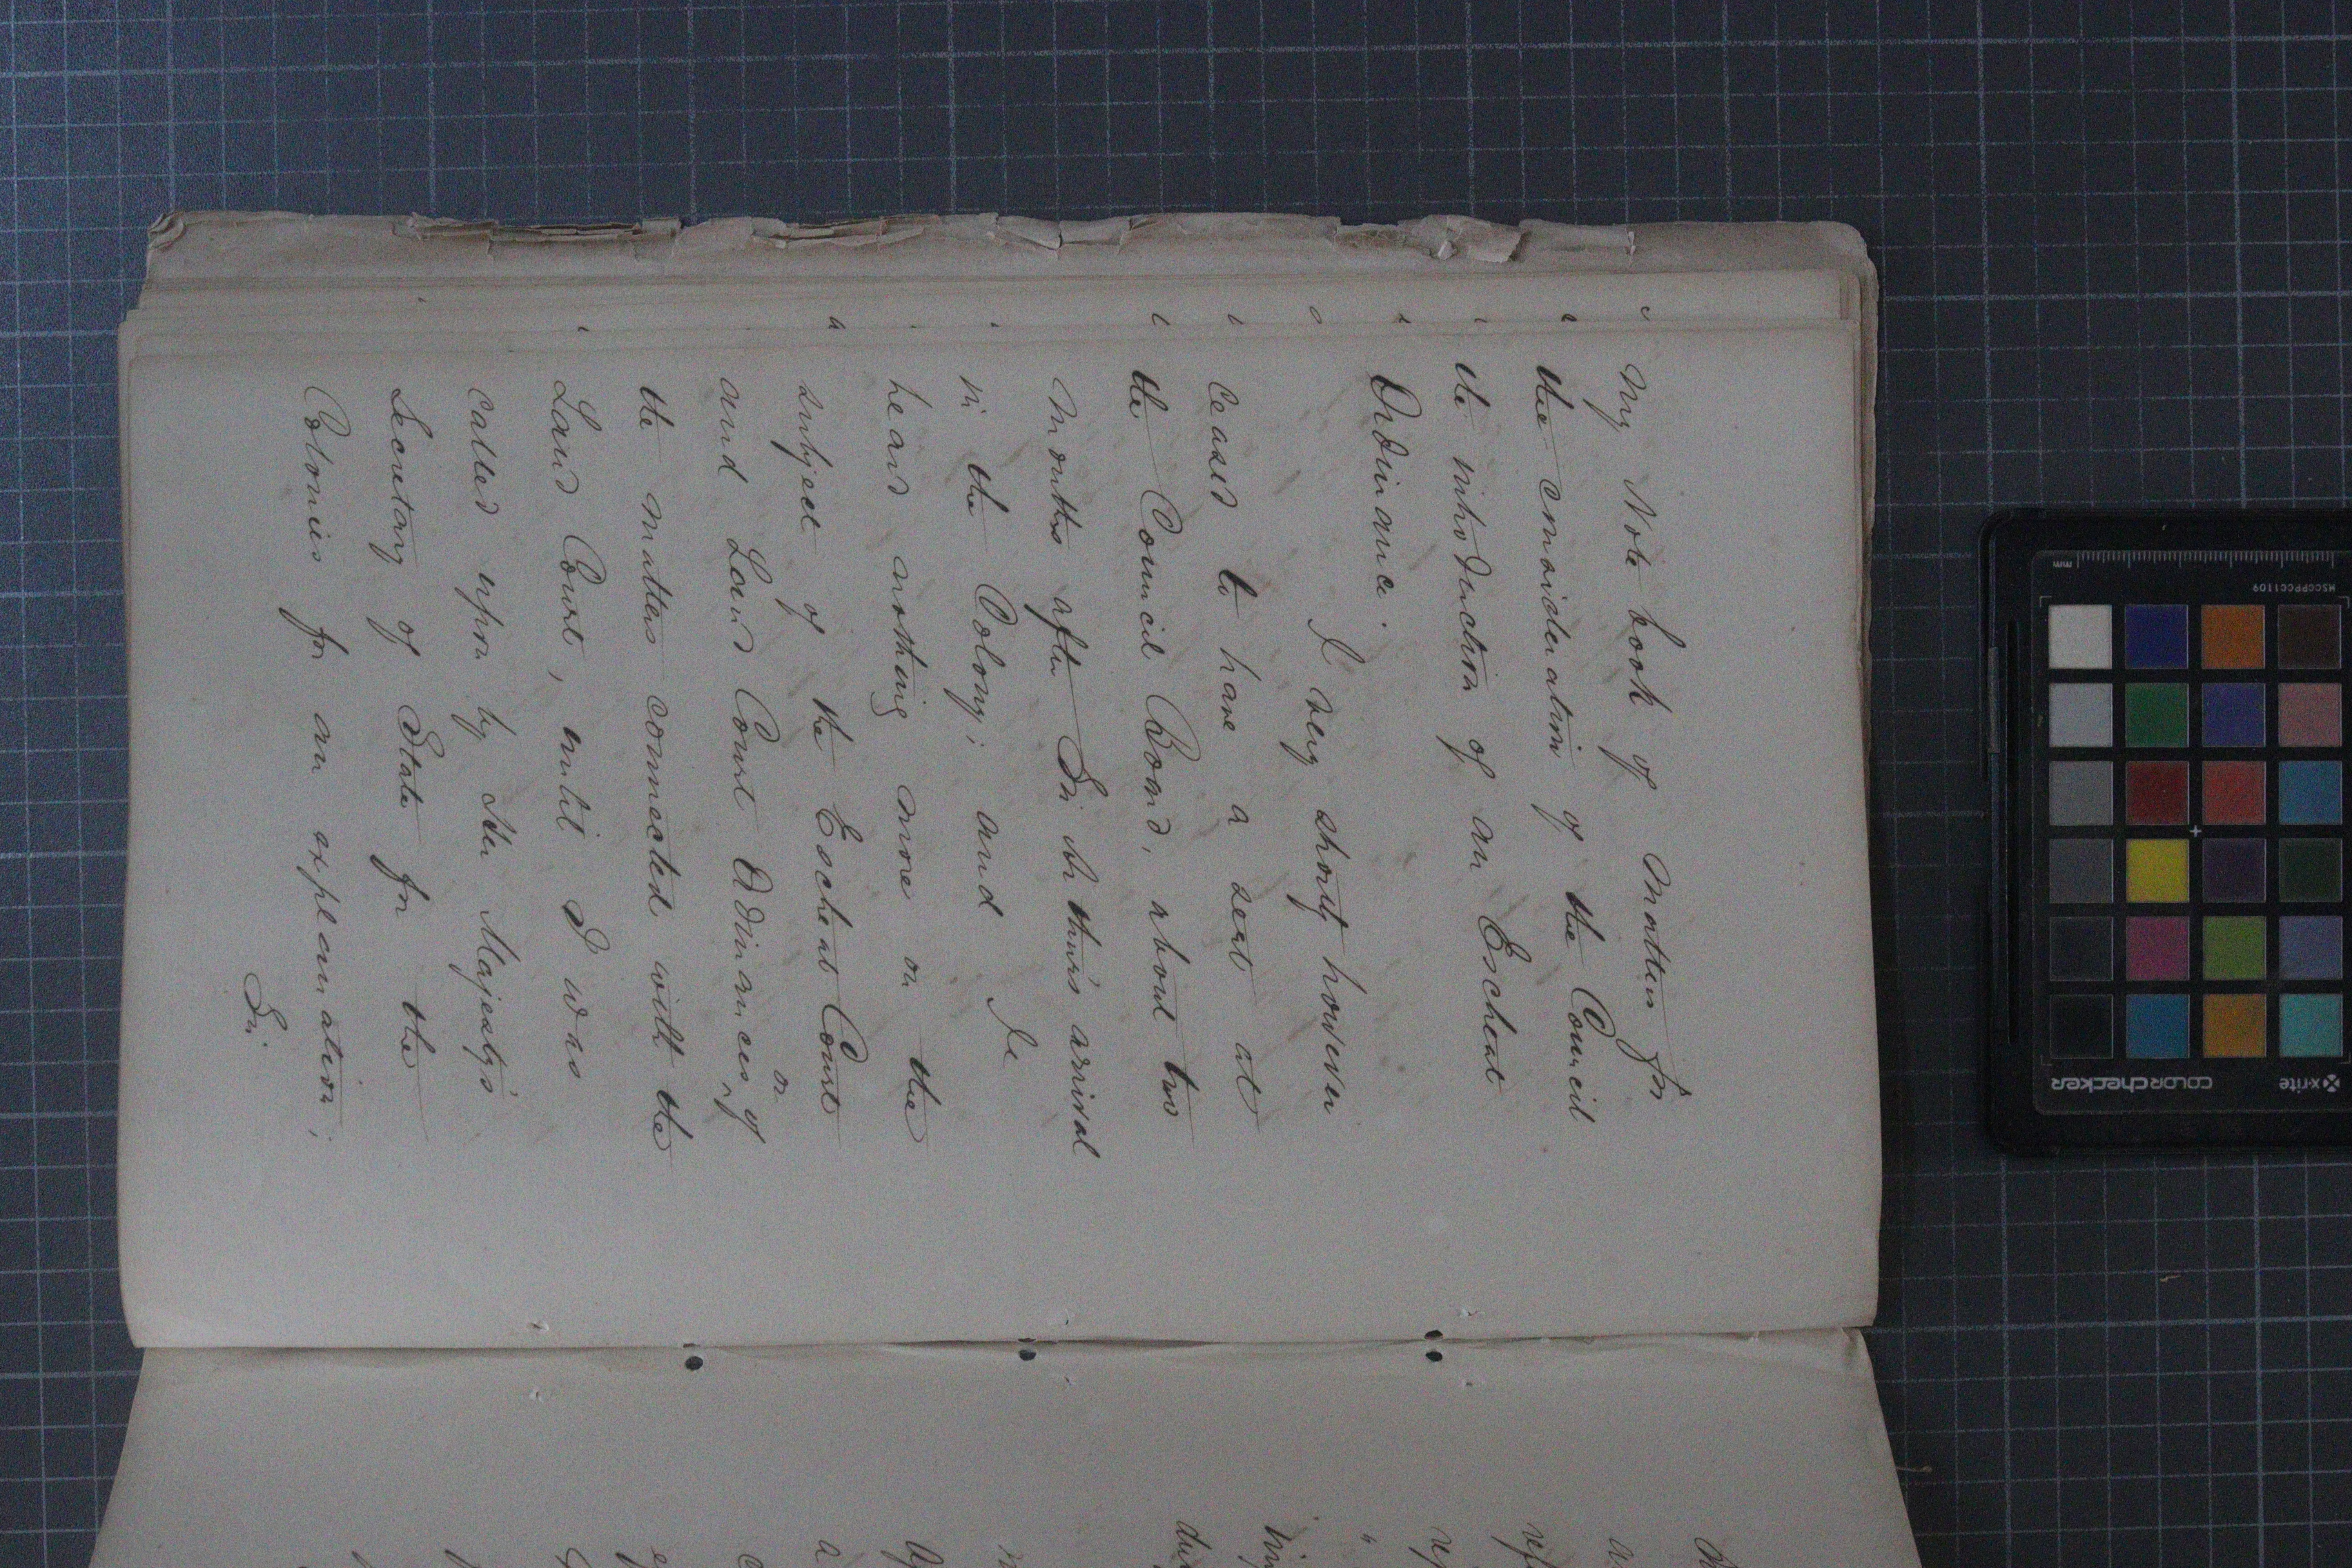 My Note book of matters for
the consideration of the Council
the introduction of an Escheat
Ordinance.
I very shortly however
ceased to have a seat at
the Council Board, about two
months after Sir Arthur's arrival
in the Colony; and I
heard nothing more on the
subject of the Escheat Court
and Land Court Ordinances, or of
the matters connected with the
Land Court, until I was
called upon by Her Majesty's
Secretary of State for the
Colonies for an explanation;
Sir
mm
MSCCPPCC1109
x-rite
colorchecker